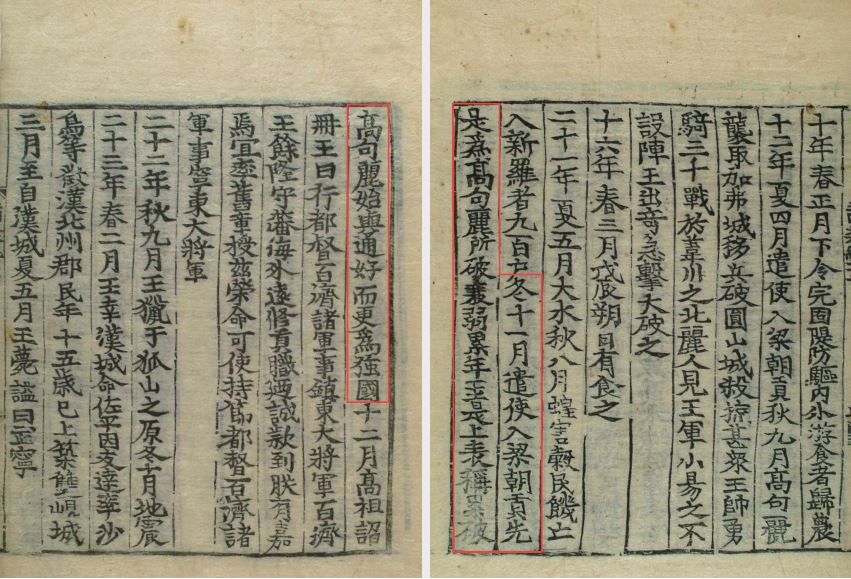 十年春正月下令完固隄防驅内外游食者歸農
十二年夏四月遣使入梁朝貢秋九月高句麗
襲取加弗城移兵破圓山城殺掠甚衆王帥勇
騎三千戰於葦川之北麗人見王軍小易之不
設陣王出竒急擊大破之
十六年春三月戊辰朔日有食之
二十一年夏五月大水秋八月蝗害穀民饑亡
入新羅者九百戶冬十一月遣使入梁朝貢先
是爲高句麗所破衰弱累年至是上表稱累破
高句麗始與通好而更爲強國十二月高祖詔
冊王曰行都督百濟諸軍事鎮東大將軍百濟
王餘隆守藩海外遠修貢職迺誠款到朕有嘉
焉宜率舊章授兹榮命可使持節都督百濟諸
軍事寧東大將軍
二十二年秋九月王獵于狐山之原冬十月地震
二十三年春二月王幸漢城命佐平因友達率沙
烏等徵漢北州郡民年十五歲已上築雙峴城
三月至自漢城夏五月王薨謚曰武寧